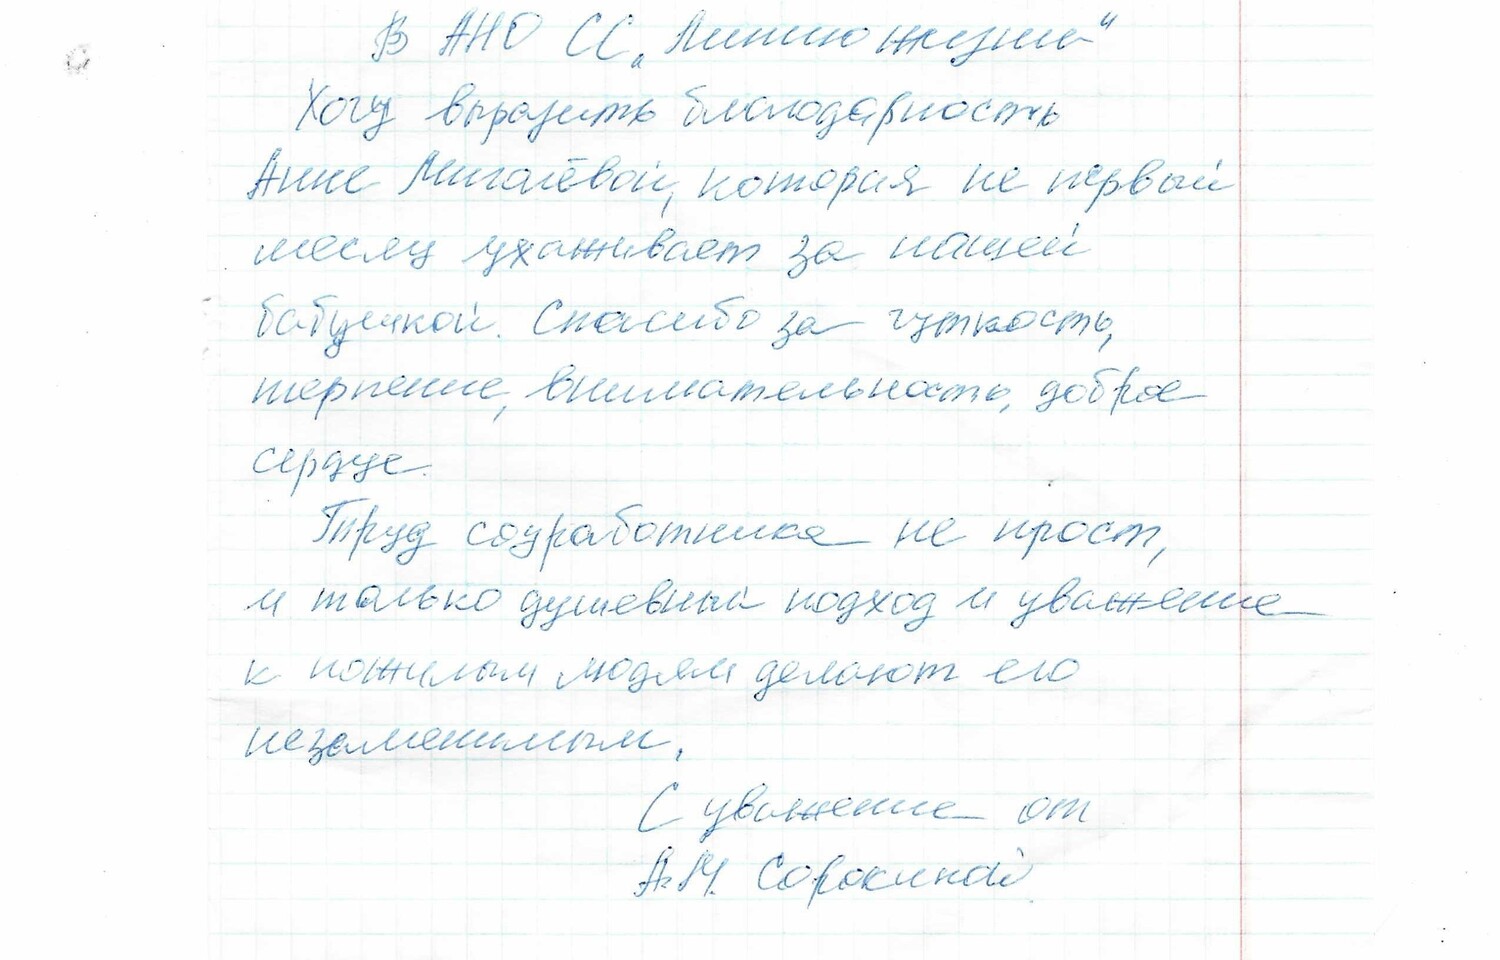 В АНО СС „Линию жизни“
Хочу выразить благодарность
Анне Мигалёвой, которая не первый
месяц ухаживает за нашей
бабушкой. Спасибо за чуткость,
терпение, внимательность, доброе
сердце.
Труд соцработника не прост,
и только душевный подход и уважение
к пожилым людям делают его
незаменимым.
С уважение от
А.М. Сорокиной